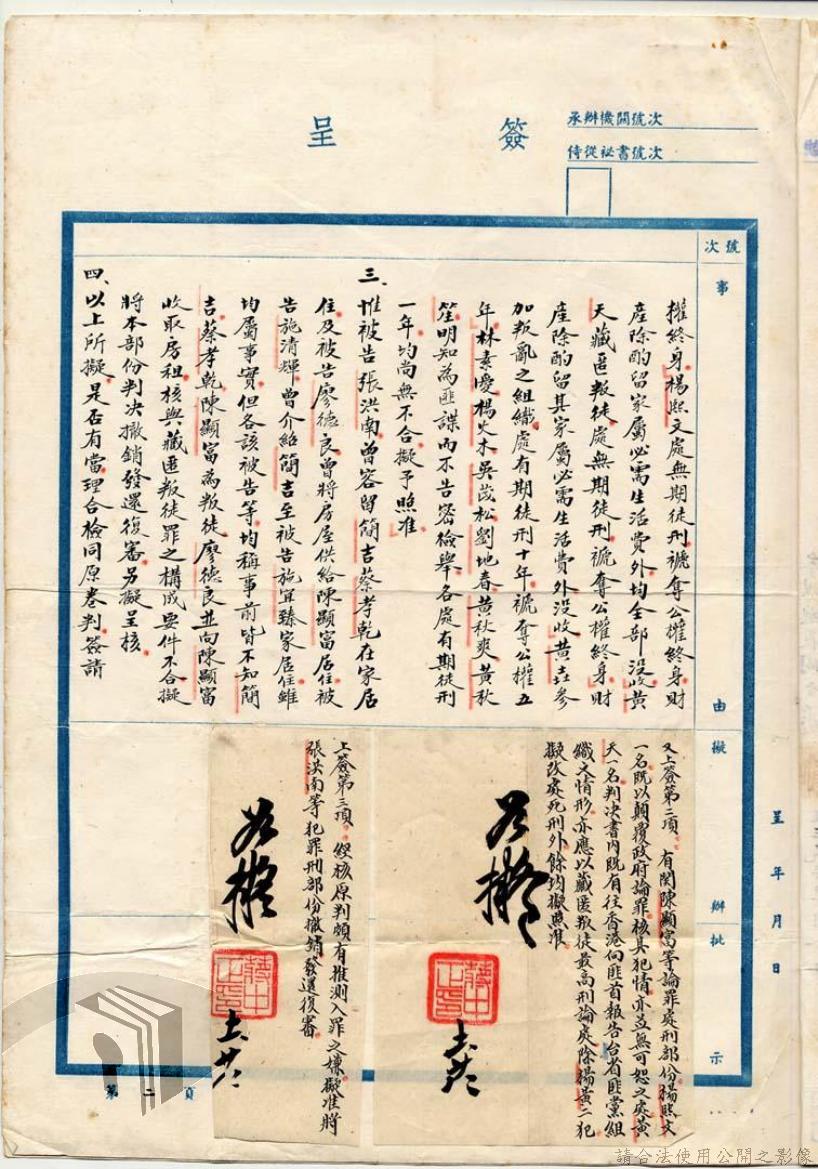 簽呈
承辦機關號次
侍從祕書號次
號次
事由擬辦批示
權終身楊熙文處無期徒刑褫奪公權終身財
產除酌留家屬必需生活費外均全部沒收黃
天藏匿叛徒處無期徒刑褫奪公權終身財
產除酌留其家屬必需生活費外沒收黃垚參
加叛亂之組織處有期徒刑十年褫奪公權五
年林素愛楊火木吳茂松劉地春黃秋爽黃秋
笙明知為匪諜而不告密檢舉各處有期徒刑
一年均尚無不合擬予照准
三、惟被告張洪南曾容留簡吉蔡孝乾在家居
住及被告廖德良曾將房屋供給陳顯富居住被
告施清輝曾介紹簡吉至被告施宜臻家居住雖
均屬事實但各該被告等均稱事前皆不知簡
吉蔡孝乾陳顯富為叛徒廖德良並向陳顯富
收取房租核與藏匿叛徒罪之構成要件不合擬
將本部份判決撤銷發還復審另擬呈核
四、以上所擬是否有當理合檢同原卷判簽請
呈年月日
又上簽第二項有関陳顯富等論罪處刑部份楊熙文
一名既以顛覆政府論罪核其犯情亦並無可恕之處黃
天一名判決書內既有往香港向匪首報告台省匪黨組
織之情形亦應以藏匿叛徒最高刑論處除楊黃二犯
擬改處死刑外餘均擬照准
如擬
蔣中正印
上簽第三項經核原判頗有推測入罪之嫌擬准將
張洪南等犯罪刑部份撤銷發還復審
如擬
蔣中正印
第二頁
請合法使用公開之影像